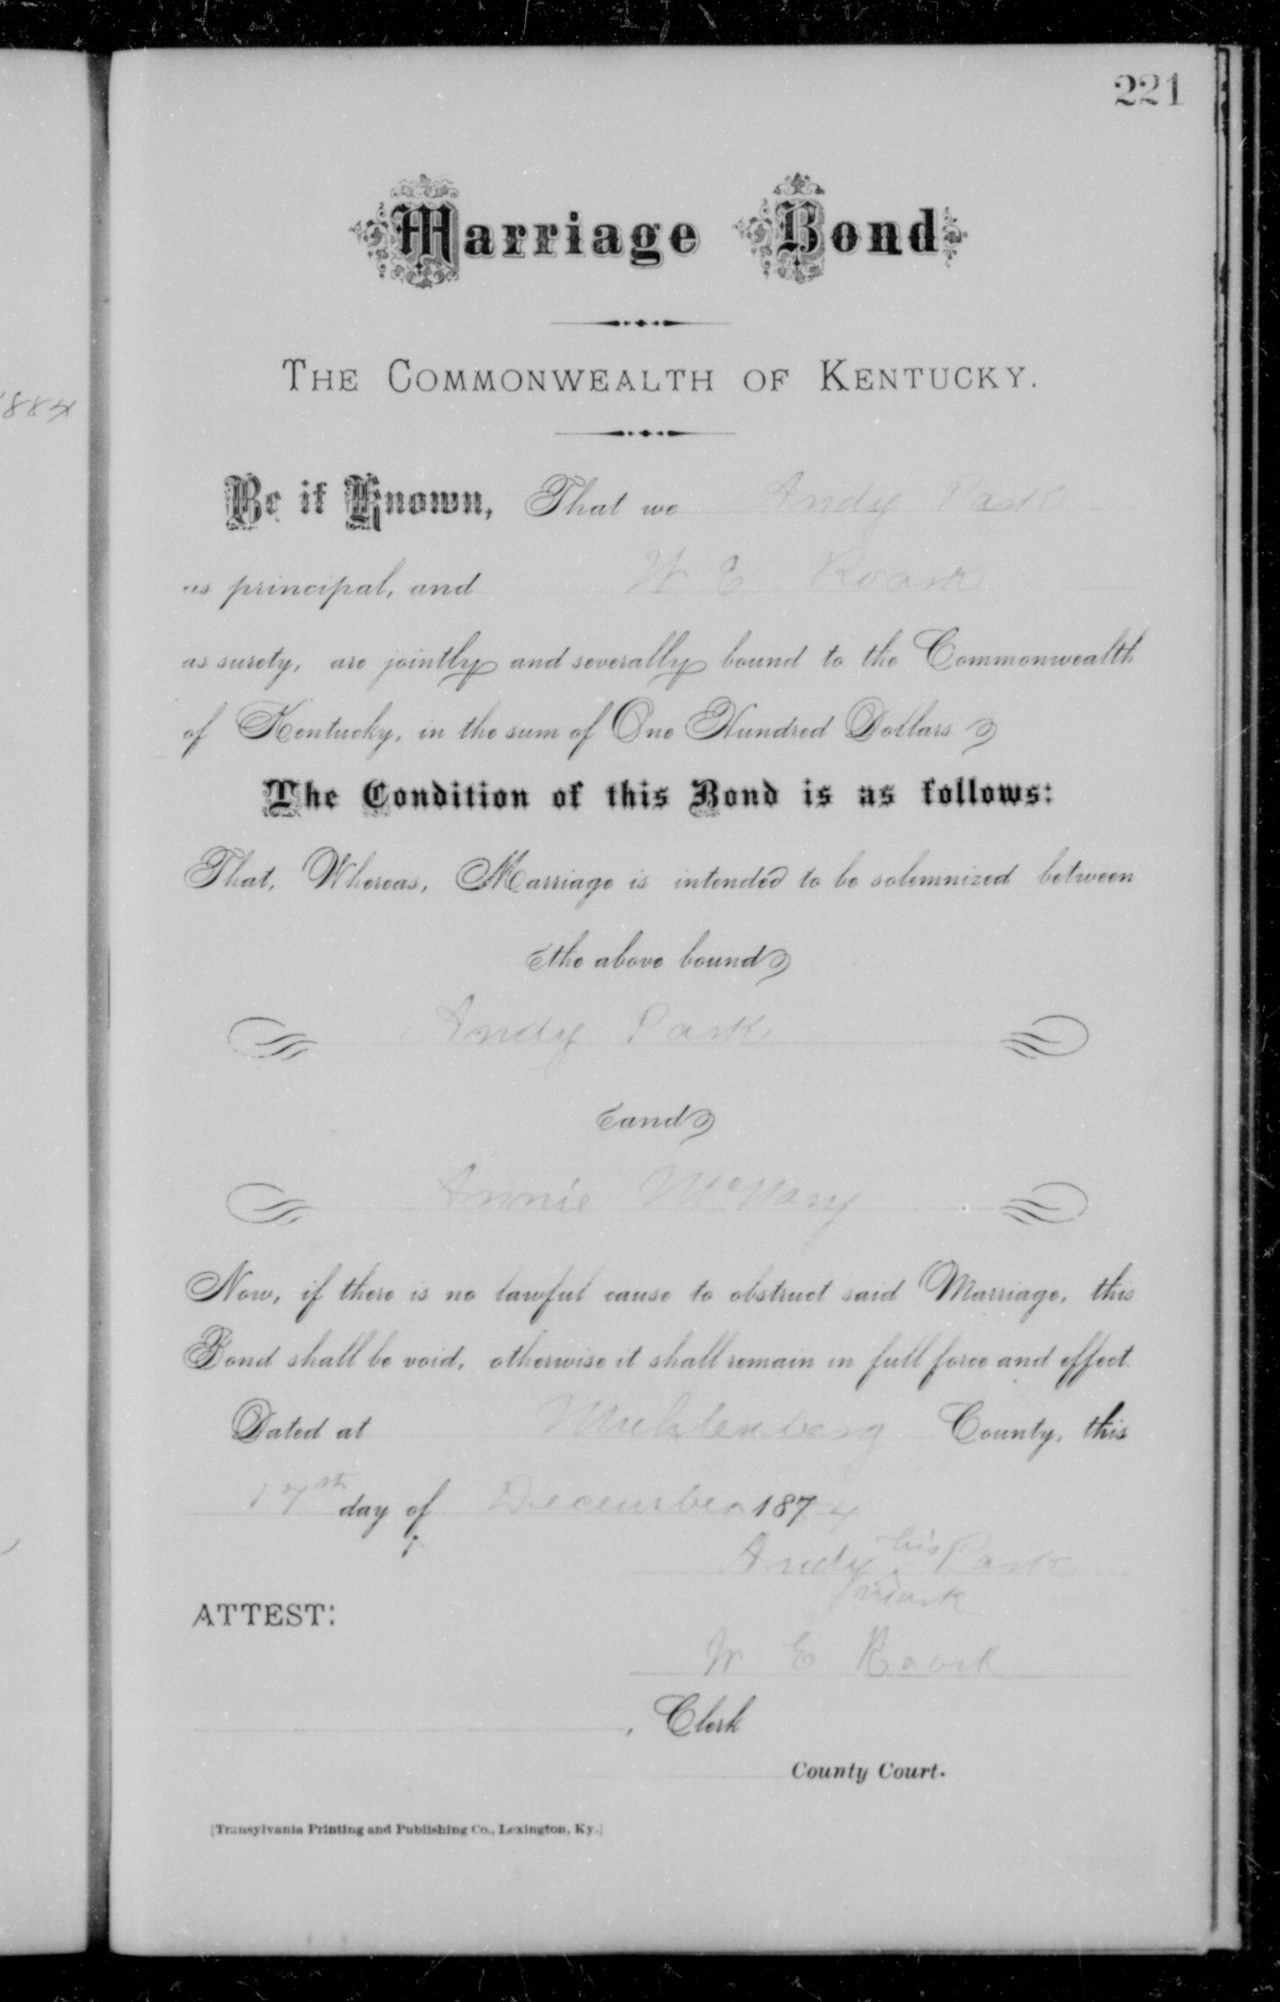 221
Marriage Bond
THE COMMONWEALTH OF KENTUCKY.
1884
Be it Known, That we Andy Park
as principal, and W E Roark
as surety, are jointly and severally bound to the Commonwealth
of Kentucky, in the sum of One Hundred Dollars
The Condition of this Bond is as follows:
That, Whereas, Marriage is intended to be solemnized between
the above bound
Andy Park
and
Annie McNary
Now, if there is no lawful cause to obstruct said Marriage, this
Bond shall be void, otherwise it shall remain in full force and effect.
Dated at Muhlenberg County, this
17th day of December 1874
Andy his Park
mark
ATTEST:
W E Roark
, Clerk
County Court.
[Transylvania Printing and Publishing Co., Lexington, Ky.]